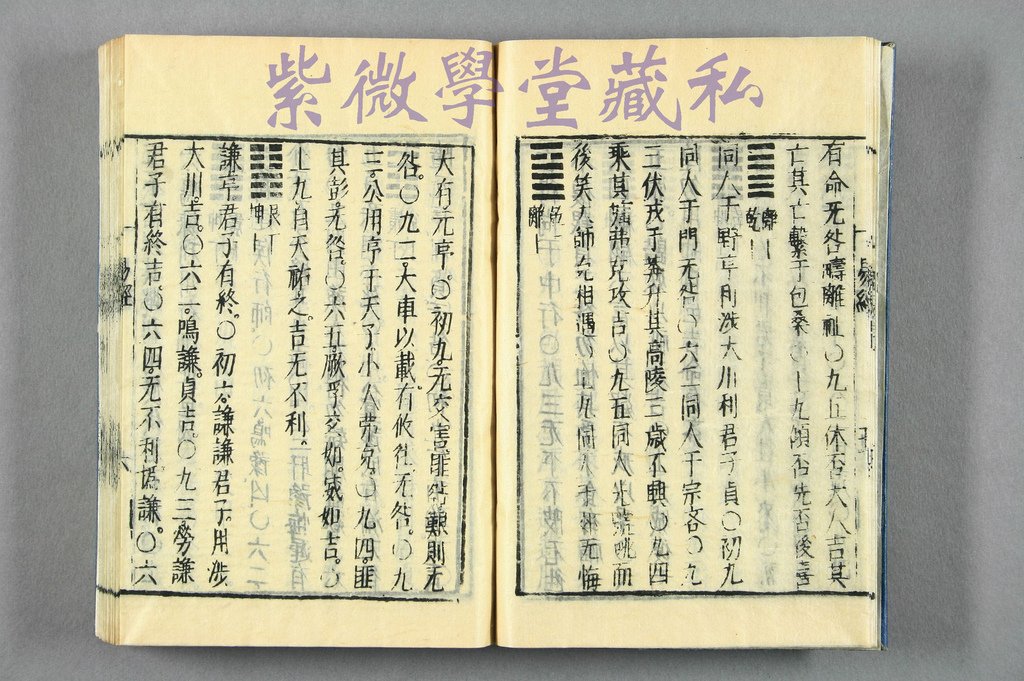 紫微學堂藏私
有命无咎疇離祉〇九五休否大人吉其
亡其亡繫于包桑〇上九傾否先否後喜
離上
乾下
同人于野亨利涉大川利君子貞〇初九
同人于門无咎〇六二同人于宗吝〇九
三伏戎于莽升其高陵三歲不興〇九四
乘其墉弗克攻吉〇九五同人先號咷而
後笑大師克相遇〇上九同人于郊无悔
乾
離
易經
大有元亨。〇初九。无交害匪咎艱則无
咎。〇九二大車以載。有攸往无咎。〇九
三。公用亨于天子。小人弗克。〇九四匪
其彭。无咎。〇六五。厥孚交如。威如吉。〇
上九自天祐之。吉无不利。
艮下
坤上
謙亨。君子有終。〇初六。謙謙君子。用涉
大川。吉。〇六二。鳴謙。貞吉。〇九三。勞謙
君子有終吉。〇六四。无不利撝謙。〇六
易經